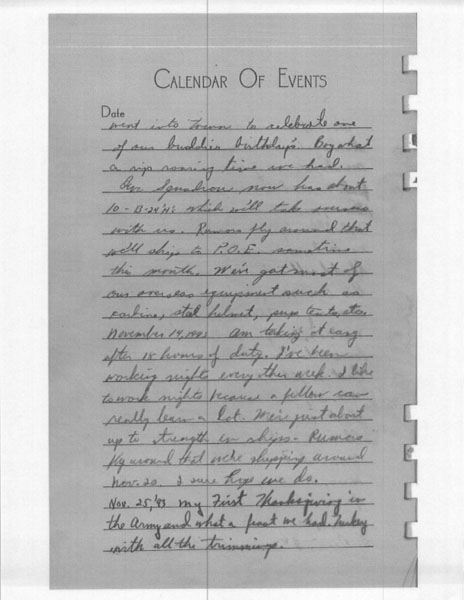 CALENDAR OF EVENTS
Date
went into town to celebrate one
of our buddies birthdays. Boy what
a rip roaring time we had.
Our Squadron now has about
10 - B-24's which we'll take overseas
with us. Rumors fly around that
we'll ship to P.O.E. sometime
this month. We've got most of
our overseas equipment such as
carbine, steel helmet, pup tents, etc.
November 19, Am taking it easy
after 18 hours of duty. I've been
working nights every other week. I like
to work nights because a fellow can
really learn a lot. We're just about
up to strength in ships - Rumors
fly around that we're shipping around
Nov. 20. I sure hope we do.
Nov. 25, '43 My First Thanksgiving in
the Army and what a feast we had. Turkey
with all the trimmings.